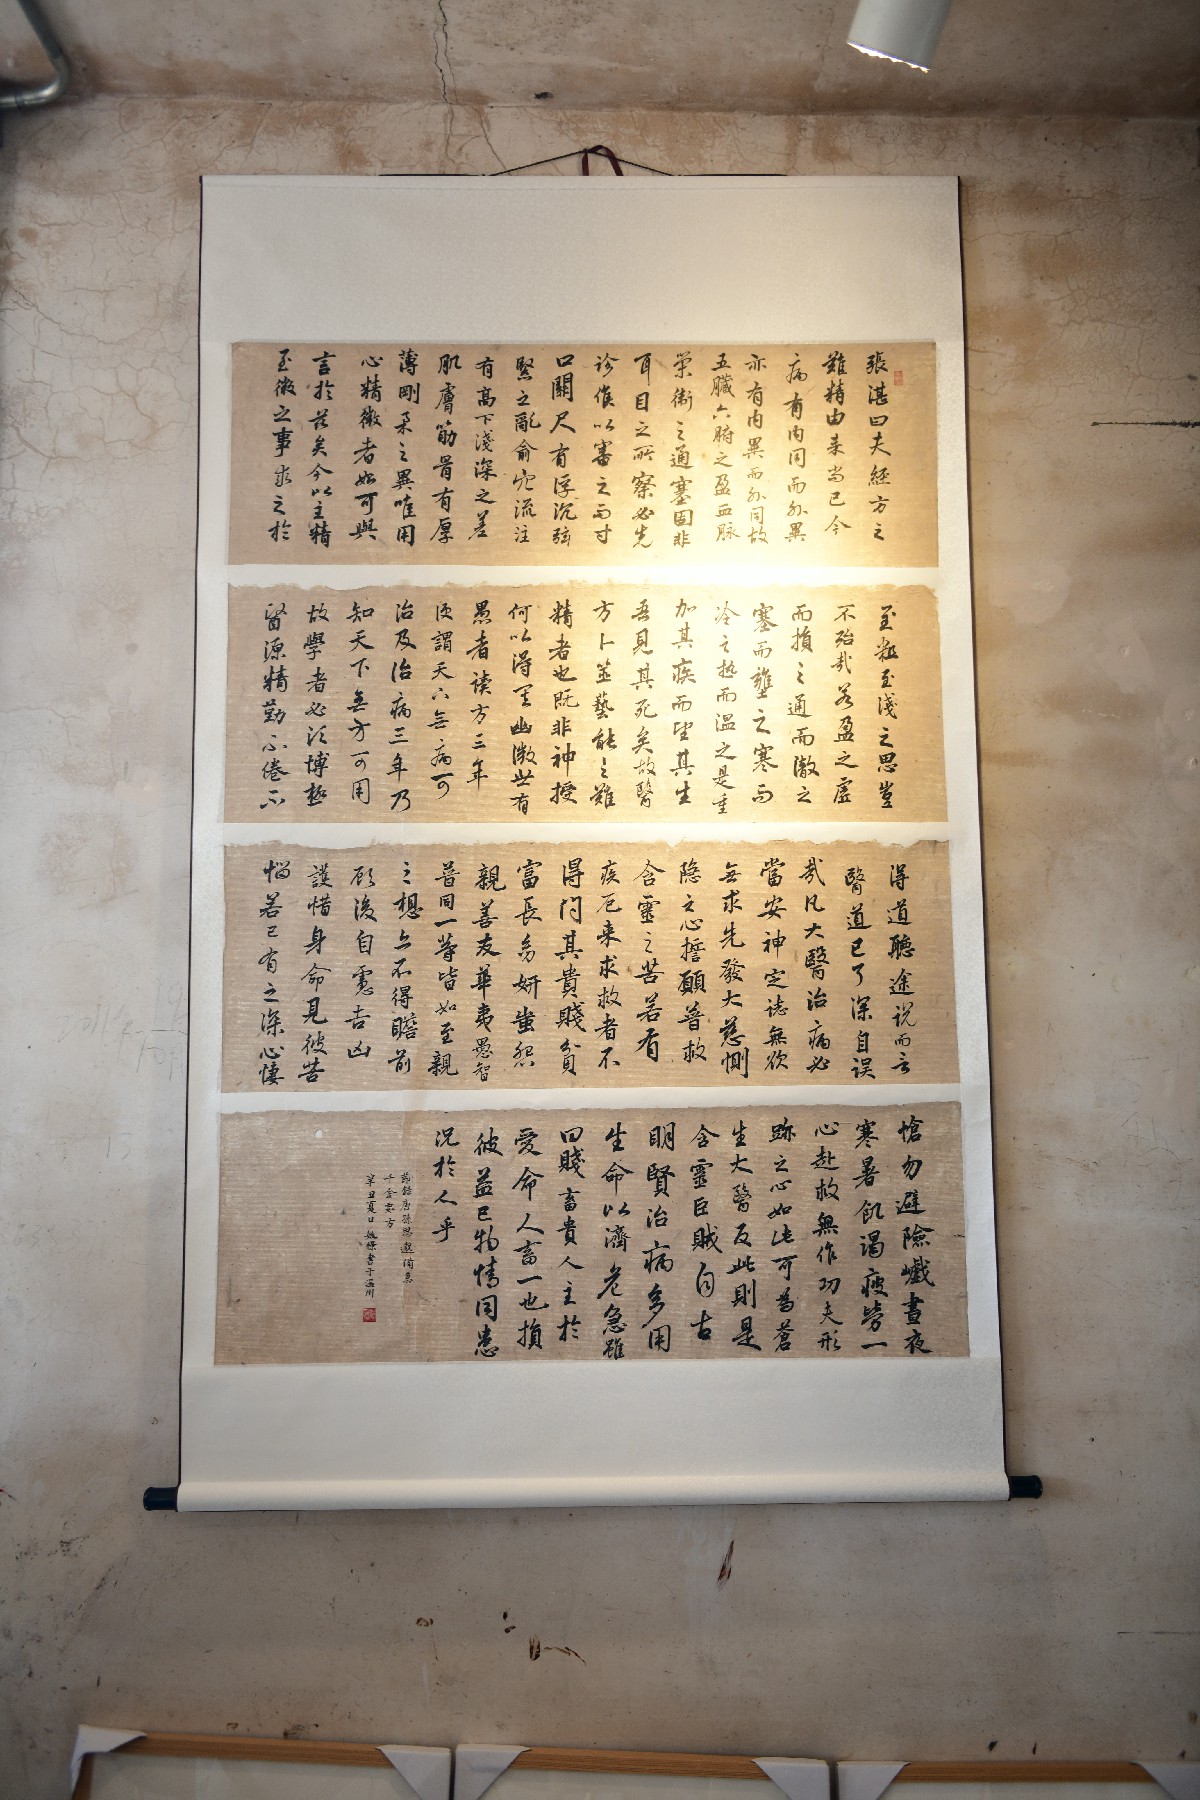 張湛曰夫經方之
難精由来尚已今
病有内同而外異
亦有内異而外同故
五臟六腑之盈血脉
榮衛之通塞固非
耳目之所察必先
診候以審之而寸
口關尺有浮沉弦
緊之亂俞穴流注
有高下淺深之差
肌膚筋骨有厚
薄剛柔之異唯用
心精微者始可與
言於兹矣今以至精
至微之事求之於
至粗至淺之思豈
不殆哉若盈之虚
而損之通而澈之
塞而壅之寒而
冷之热而温之是重
加其疾而望其生
吾見其死矣故醫
方卜筮藝能之難
精者也既非神授
何以得其幽微世有
愚者读方三年
便謂天下無病可
治及治病三年乃
知天下無方可用
故學者必須博極
醫源精勤不倦不
得道聽途说而言
醫道已了深自误
哉凡大醫治病必
當安神定志無欲
無求先發大慈惻
隐之心誓願普救
含靈之苦若有
疾厄来求救者不
得问其貴賤貧
富長幼妍蚩怨
親善友華夷愚智
普同一等皆如至親
之想亦不得瞻前
顾後自慮吉凶
護惜身命見彼苦
惱若已有之深心悽
愴勿避險巇晝夜
寒暑飢渴疲勞一
心赴救無作功夫形
跡之心如此可為蒼
生大醫反此則是
含靈巨賊自古
明賢治病多用
生命以濟危急雖
曰賤畜貴人至於
愛命人畜一也損
彼益已物情同患
況於人乎
節録唐孫思邈備急
千金要方
辛丑夏日 書于温州